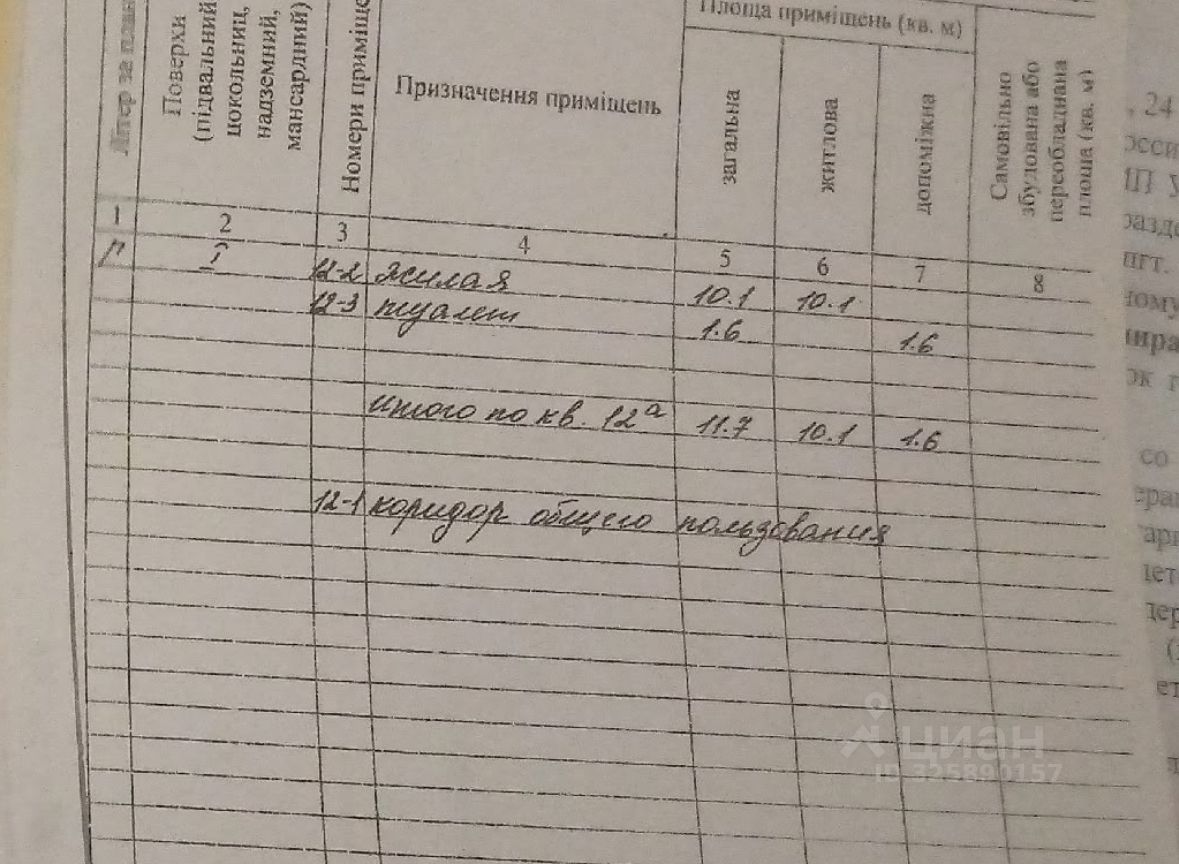 Площа приміщень (кв. м)
Літер за план
Поверхи
(підвальний
цокольниц,
надземний,
мансардний)
Номери приміще
Призначення приміщень
загальна
житлова
допоміжна
Самовільно
збудована або
переобладнана
площа (кв. м)
1 2 3 4 5 6 7 8
I 12-2 жилая 10.1 10.1
12-3 туалет 1.6 1.6
Итого по кв. 12а 11.7 10.1 1.6
12-1 коридор общего пользования
, 24
МП У
пгт.
ному
со
циан
ID 325890157